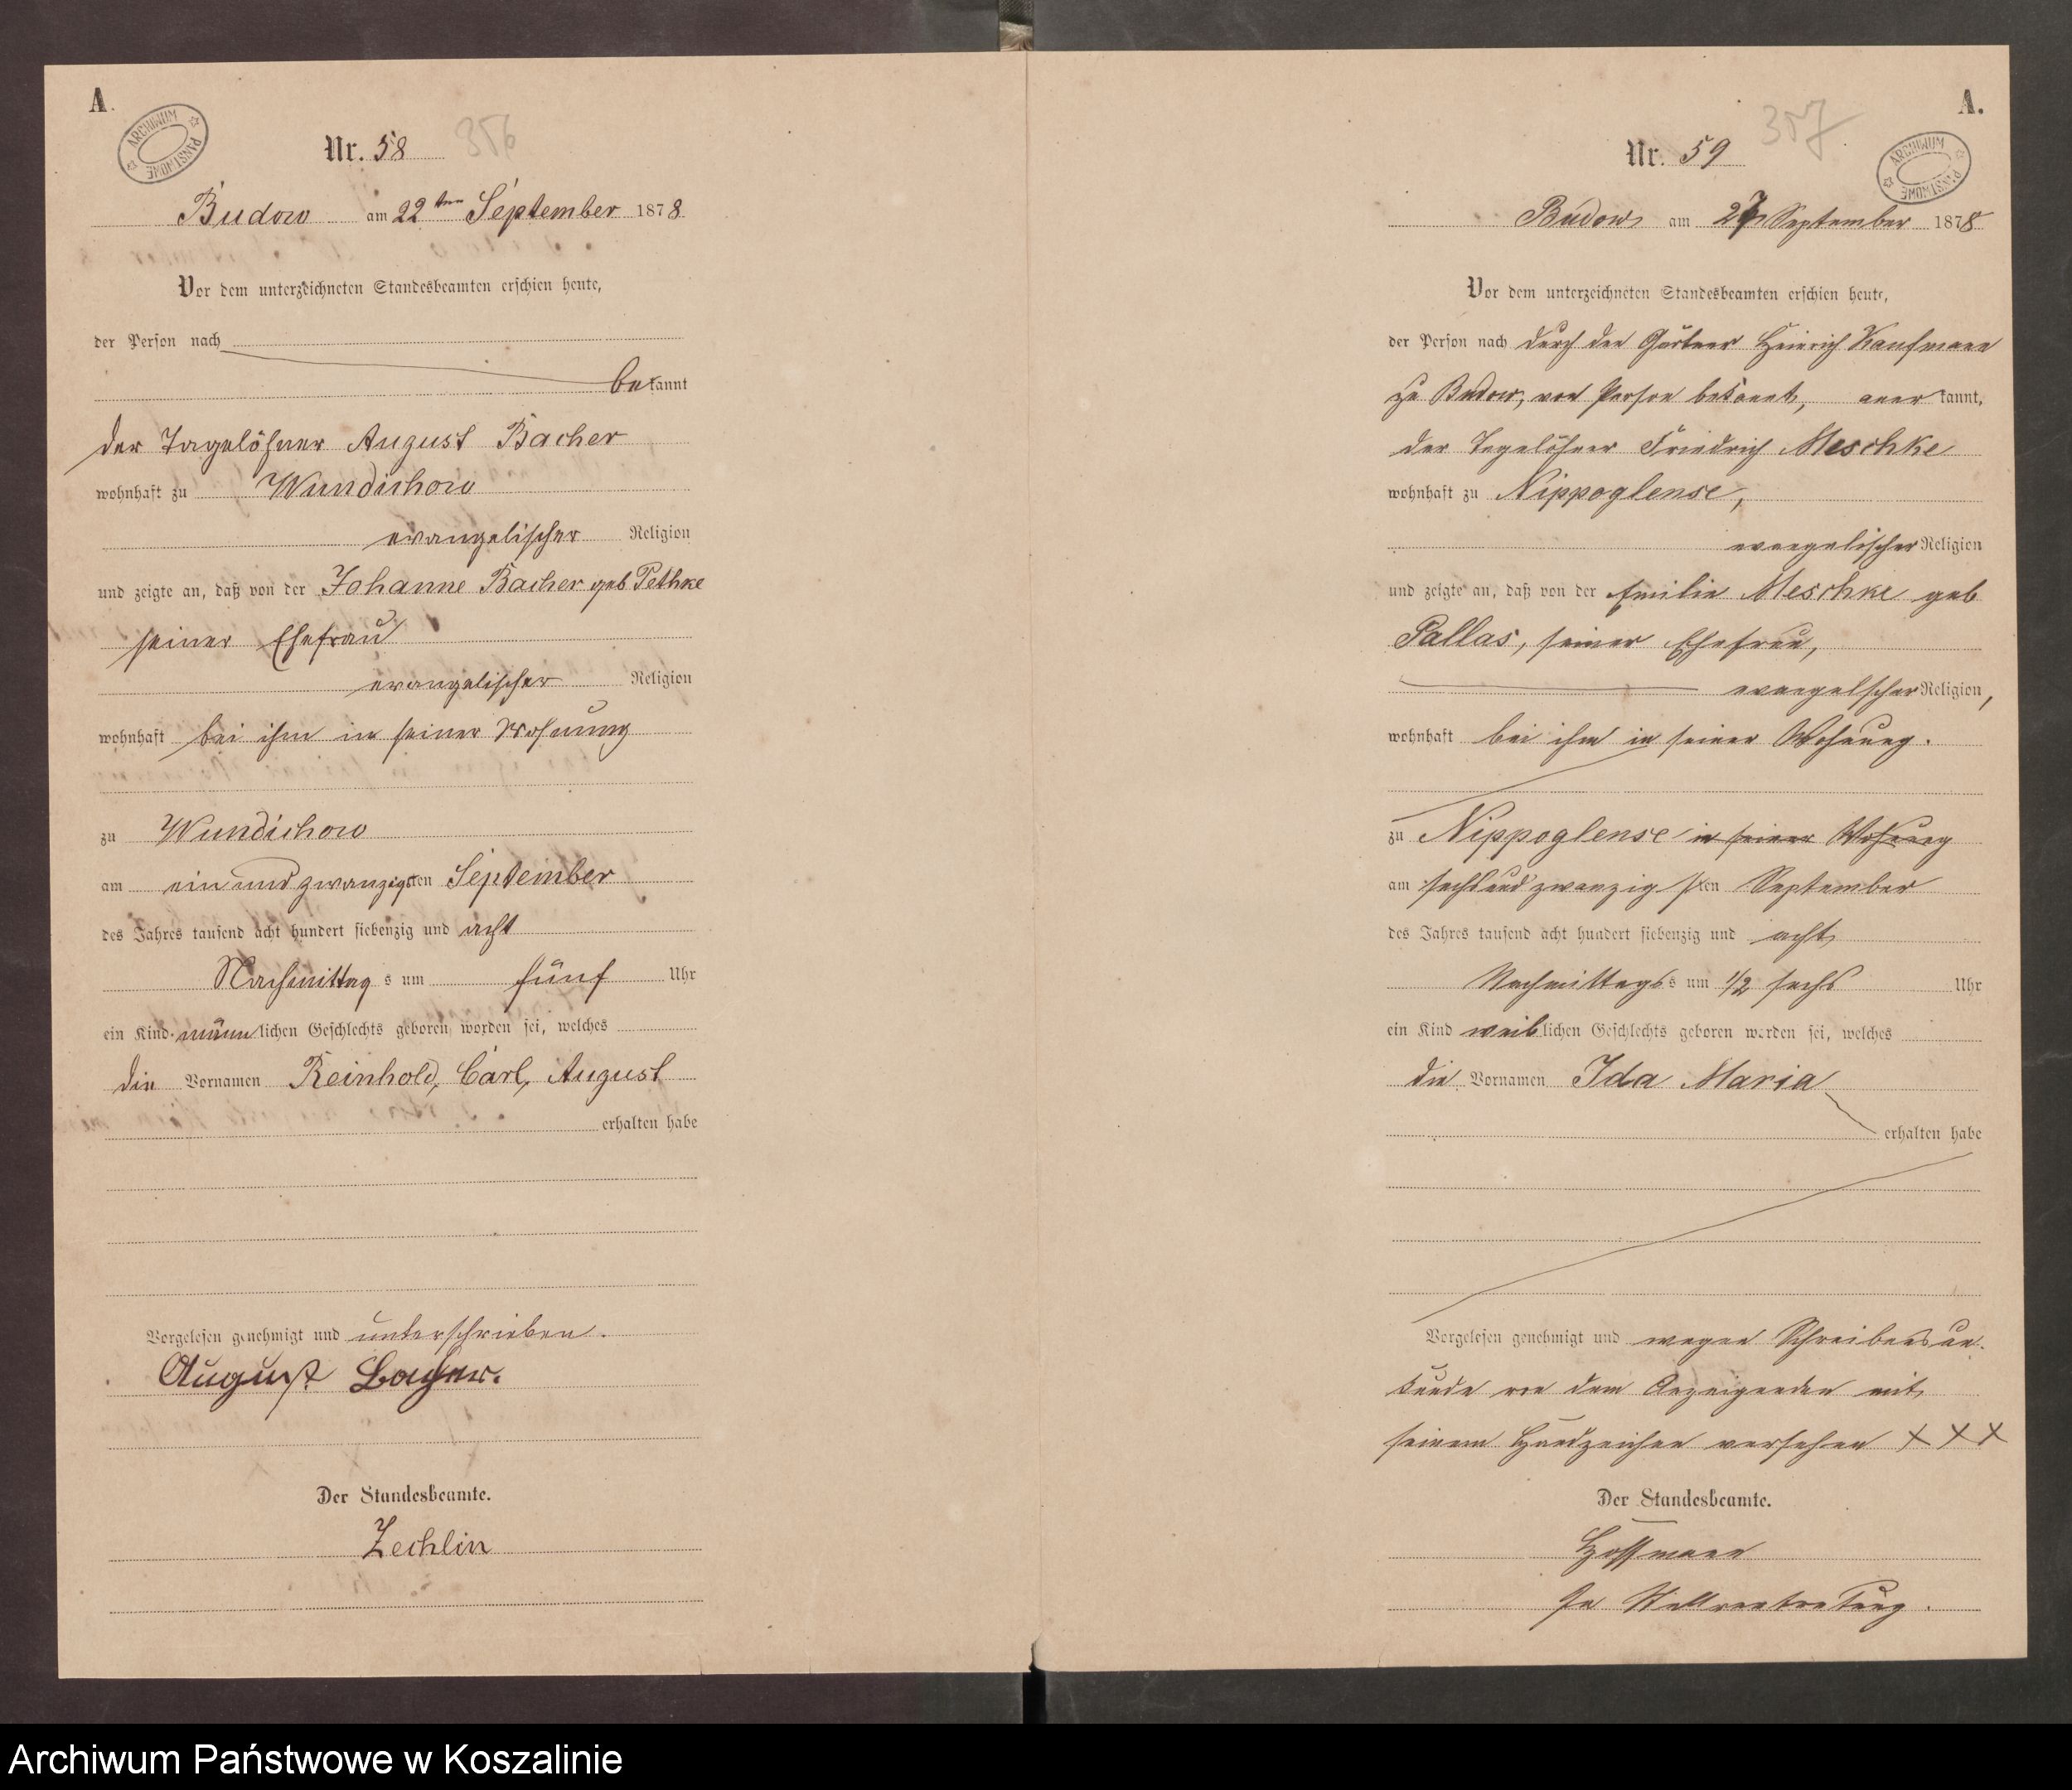 A.
ARCHIWUM PAŃSTWOWE
Nr. 58
356
Budow am 22ten September 1878
Vor dem unterzeichneten Standesbeamten erschien heute,
der Person nach
bekannt
der Tagelöhner August Bacher
wohnhaft zu Wundichow
evangelischer Religion
und zeigte an, daß von der Johanne Bacher geb Pethke
seiner Ehefrau
evangelischer Religion
wohnhaft bei ihm in seiner Wohnung
zu Wundichow
am ein und zwanzigsten September
des Jahres tausend acht hundert siebenzig und acht
Nachmittags um fünf Uhr
ein Kind männlichen Geschlechts geboren worden sei, welches
die Vornamen Reinhold, Carl, August
erhalten habe
Vorgelesen genehmigt und unterschrieben.
August Bacher.
Der Standesbeamte.
Zechlin
A.
ARCHIWUM PAŃSTWOWE
Nr. 59
357
Budow am 27 September 1878
Vor dem unterzeichneten Standesbeamten erschien heute,
der Person nach durch den Gärtner Heinrich Kaufmann
zu Budow, von Person bekannt, anerkannt,
der Tagelöhner Friedrich Meschke
wohnhaft zu Nippoglense,
evangelischer Religion
und zeigte an, daß von der Emilie Meschke geb
Pallas, seiner Ehefrau,
evangelscher Religion,
wohnhaft bei ihm in seiner Wohnung.
zu Nippoglense in seiner Wohnung
am sechsundzwanzigsten September
des Jahres tausend acht hundert siebenzig und acht
Nachmittags s um 1/2 sechs Uhr
ein Kind weiblichen Geschlechts geboren worden sei, welches
die Vornamen Ida Maria
erhalten habe
Vorgelesen genehmigt und wegen Schreibensun-
kunde von dem Anzeigenden mit
seinem Handzeichen versehen XXX
Der Standesbeamte.
Hoffmann
In Stellvertretung.
Archiwum Państwowe w Koszalinie